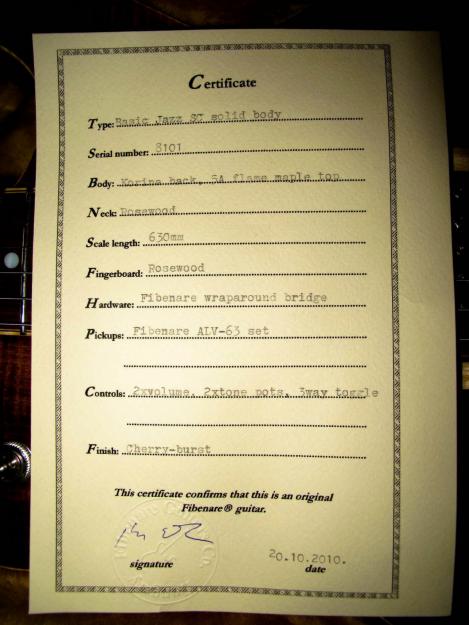 Certificate
Type: Basic Jazz SC solid body
Serial number: 8101
Body: Korina back, 5A flame maple top
Neck: Rosewood
Scale length: 630mm
Fingerboard: Rosewood
Hardware: Fibenare wraparound bridge
Pickups: Fibenare ALV-63 set
Controls: 2xvolume, 2xtone pots, 3way toggle
Finish: Cherry-burst
This certificate confirms that this is an original
Fibenare® guitar.
20.10.2010.
signature
date